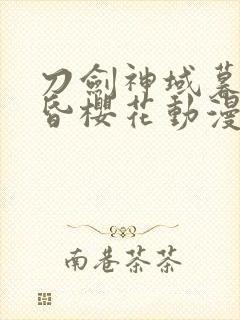 刀劍神域幕
昏櫻花動漫
南巷茶茶